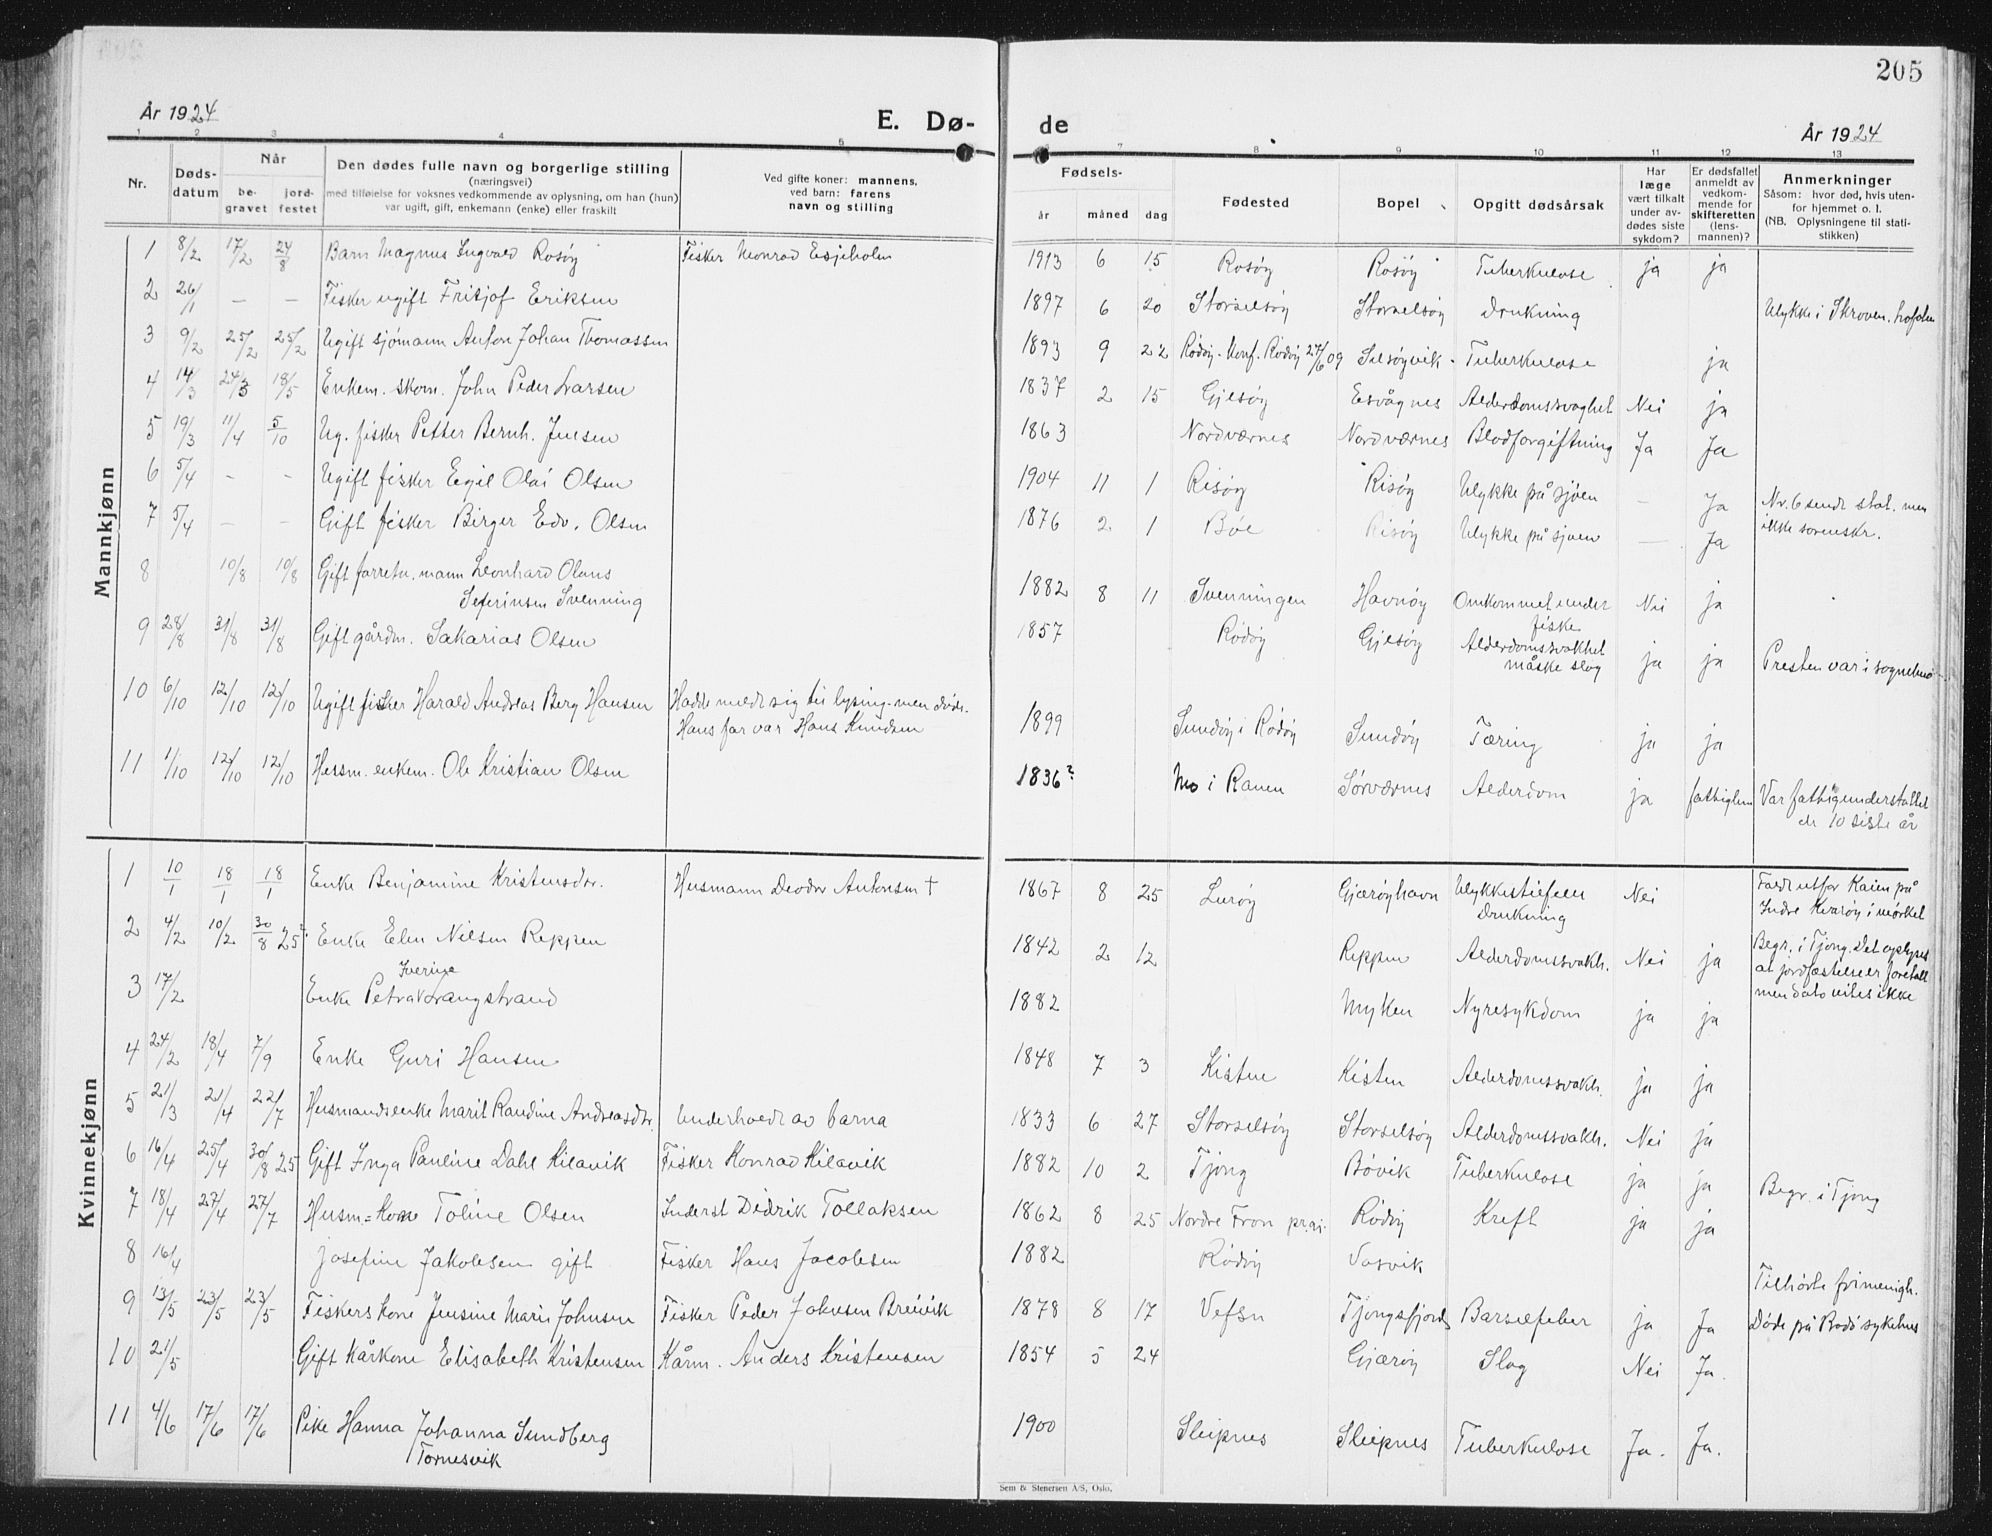 205
År 1924
E. Dø-
de
År 1924
1 2 3 4 5 6 7 8 9 10 11 12 13
Nr.
Døds-
datum
Når
be-
gravet
jord-
festet
Den dødes fulle navn og borgerlige stilling
(næringsvei)
med tilføielse for voksnes vedkommende av oplysning, om han (hun)
var ugift, gift, enkemann (enke) eller fraskilt
Ved gifte koner: mannens,
ved barn: farens
navn og stilling
Fødsels-
år måned dag
Fødested
Bopel
Opgitt dødsårsak
Har
læge
vært tilkalt
under av-
dødes siste
sykdom?
Er dødsfallet
anmeldt av
vedkom-
mende for
skifteretten
(lens-
mannen)?
Anmerkninger
Såsom: hvor død, hvis uten-
for hjemmet o. l.
(NB. Oplysningene til stati-
stikken)
Mannkjønn
1 8/2 17/2 24/8 Barn Magnus Ingvald Rosøy Fisker Monrad Esjeholm 1913 6 15 Rosøy Rosøy Tuberkulose ja ja
2 26/1 — — Fisker ugift Fritjof Eriksen 1897 6 20 Storselsøy Storselsøy Drukning Ulykke i Skroven.
3 9/2 25/2 25/2 Ugift sjømann Anton Johan Thomassen 1893 9 22 Rødøy. Konf. Rødøy 27/6 09 Selsøyvik Tuberkulose ja
4 14/3 24/3 18/5 Enkem. skom. John Peder Larsen 1837 2 15 Gjesøy Esvågnes Alderdomssvaghet Nei ja
5 19/3 11/4 5/10 Ug. fisker Petter Bernh. Jensen 1863 Nordværnes Nordværnes Blodforgiftning Ja Ja
6 5/4 - - Ugift fisker Egil Olai Olsen 1904 11 1 Risøy Risøy Ulykke på sjøen — Ja Nr. 6 sendt stat. men
ikke sorenskr.
7 5/4 - - Gift fisker Birger Edv. Olsen 1876 2 1 Bøe Risøy Ulykke på sjøen — Ja
8 10/8 10/8 Gift forretn. mann Leonhard Olaus
Seferinsen Svenning 1882 8 11 Svenningen Havnøy Omkommet under
fiske Nei ja
9 28/8 31/8 31/8 Gift gårdm. Sakarias Olsen 1857 Rødøy Gjesøy Alderdomssvakhet
måske slag ja ja Presten var i
10 6/10 12/10 12/10 Ugift fisker Harald Andreas Berg Hansen Hadde meldt sig til lysing - men døde.
Hans far var Hans Knudsen 1899 Sundøy i Rødøy Sundøy Tæring ja ja
11 1/10 12/10 12/10 Husm. enkem. Ole Kristian Olsen 1836? Mo i Ranen Sørværnes Alderdom ja fattiglem Var fattigunderstøttet
de 10 siste år
Kvinnekjønn
1 10/1 18/1 18/1 Enke Benjamine Kristensdtr. Husmann Deodor Antonsen † 1867 8 25 Lurøy Gjærøyhavn Ulykkestilfelle
Drukning Nei Faldt utfor Kaien på
Indre Kvarøy i mørket
2 4/2 10/2 30/8 25? Enke Elen Nilsen Reppen 1842 2 12 Reppen Alderdomssvakh. Nei ja Begr. i Tjong. Det oplyses
at jordfæstelse er foretatt
men dato vites ikke
3 17/2 Enke Petra Iverine Langstrand 1882 Myken Nyresykdom ja ja
4 24/2 18/4 7/9 Enke Guri Hansen 1848 7 3 Kisten Kisten Alderdomssvakh. ja ja
5 21/3 21/4 22/7 Husmandsenke Marit Randine Andreasdtr. Underholdt av barna 1833 6 27 Storselsøy Storselsøy Alderdomssvakh. Nei ja
6 16/4 25/4 30/8 25 Gift Inga Pauline Dahl Kilavik Fisker Konrad Kilavik 1882 10 2 Tjong Bøvik Tuberkulose ja ja Begr. i Tjong
7 18/4 27/4 27/7 Husm=Kone Toline Olsen Inderst Didrik Tollaksen 1862 8 25 Nordre Fron Rødøy Kreft ja ja
8 16/4 Josefine Jakobsen gift Fisker Hans Jacobsen 1882 Rødøy Vasvik Tilhørte frimenigh.
9 13/5 23/5 23/5 Fiskers kone Jensine Marie Johnsen Fisker Peder Johnsen Breivik 1878 8 17 Vefsn Tjongsfjord Barselfeber ja Ja Døde på Bodø sykehus
10 21/5 Gift kårkone Elisabeth Kristensen Kårm. Anders Kristensen 1854 5 24 Gjærøy Slag Nei Ja.
11 4/6 17/6 17/6 Pike Hanna Johanna Sundberg
Tornesvik 1900 Sleipnes Sleipnes Tuberkulose Ja. Ja.
Sem & Stenersen A/S, Oslo.